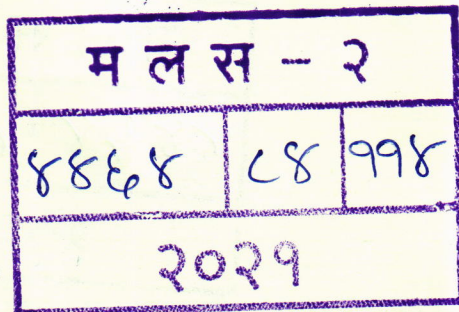 म ल स - २
४४६४ ८४ ११४
२०२१